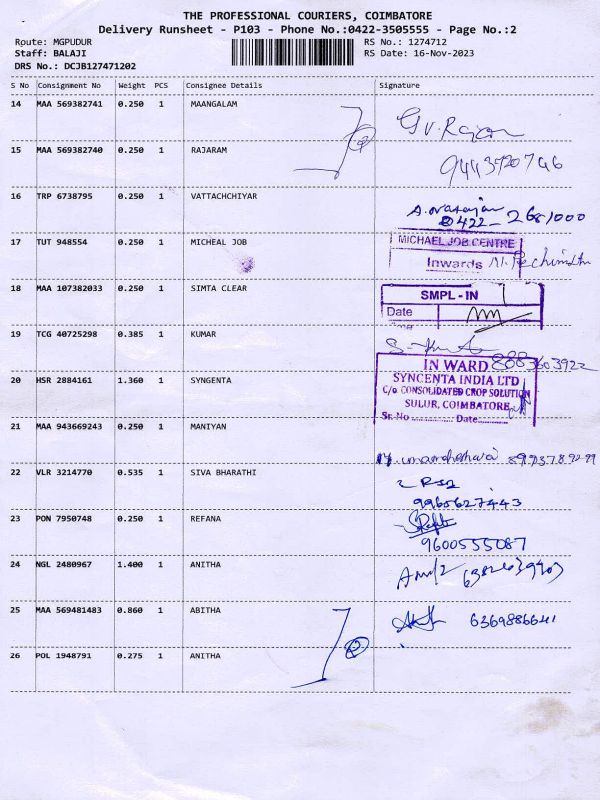 THE PROFESSIONAL COURIERS, COIMBATORE
Delivery Runsheet - P103 - Phone No.:0422-3505555 - Page No.:2
Route: MGPUDUR RS No.: 1274712
Staff: BALAJI RS Date: 16-Nov-2023
DRS No.: DCJB127471202
S No Consignment No Weight PCS Consignee Details Signature
14 MAA 569382741 0.250 1 MAANGALAM
G.V.Rajan
15 MAA 569382740 0.250 1 RAJARAM
16 TRP 6738795 0.250 1 VATTACHCHIYAR
0422-2681000
17 TUT 948554 0.250 1 MICHEAL JOB
MICHAEL JOB CENTRE
Inwards
18 MAA 107382033 0.250 1 SIMTA CLEAR
SMPL-IN
Date
19 TCG 40725298 0.385 1 KUMAR
8883603922
20 HSR 2884161 1.360 1 SYNGENTA
IN WARD
SYNCENTA INDIA LTD
C/o CONSOLIDATED CROP SOLUTION
SULUR, COIMBATORE
Sr. No Date
21 MAA 943669243 0.250 1 MANIYAN
22 VLR 3214770 0.535 1 SIVA BHARATHI
9965627443
23 PON 7950748 0.250 1 REFANA
9600555087
24 NGL 2480967 1.400 1 ANITHA
25 MAA 569481483 0.860 1 ABITHA
6369886641
26 POL 1948791 0.275 1 ANITHA